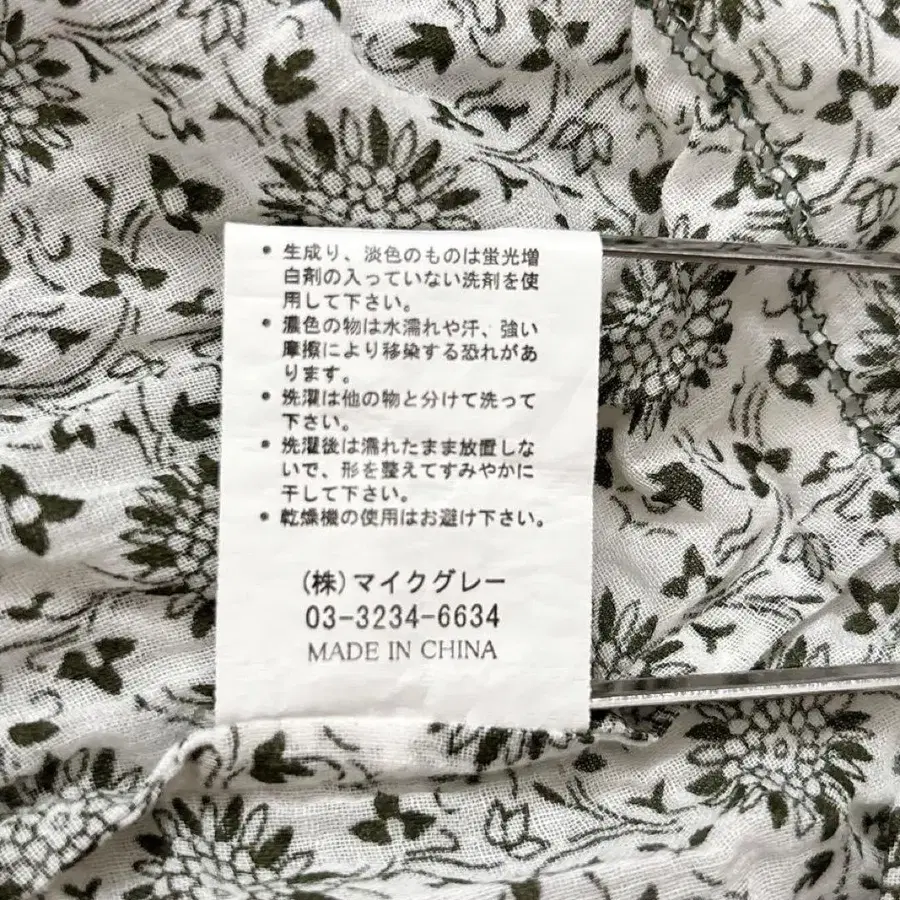 • 生成り、淡色のものは蛍光増
白剤の入っていない洗剤を使
用して下さい。
• 濃色の物は水濡れや汗、強い
摩擦により移染する恐れがあ
ります。
• 洗濯は他の物と分けて洗って
下さい。
• 洗濯後は濡れたまま放置しな
いで、形を整えてすみやかに
干して下さい。
• 乾燥機の使用はお避け下さい。
(株)マイクグレー
03-3234-6634
MADE IN CHINA